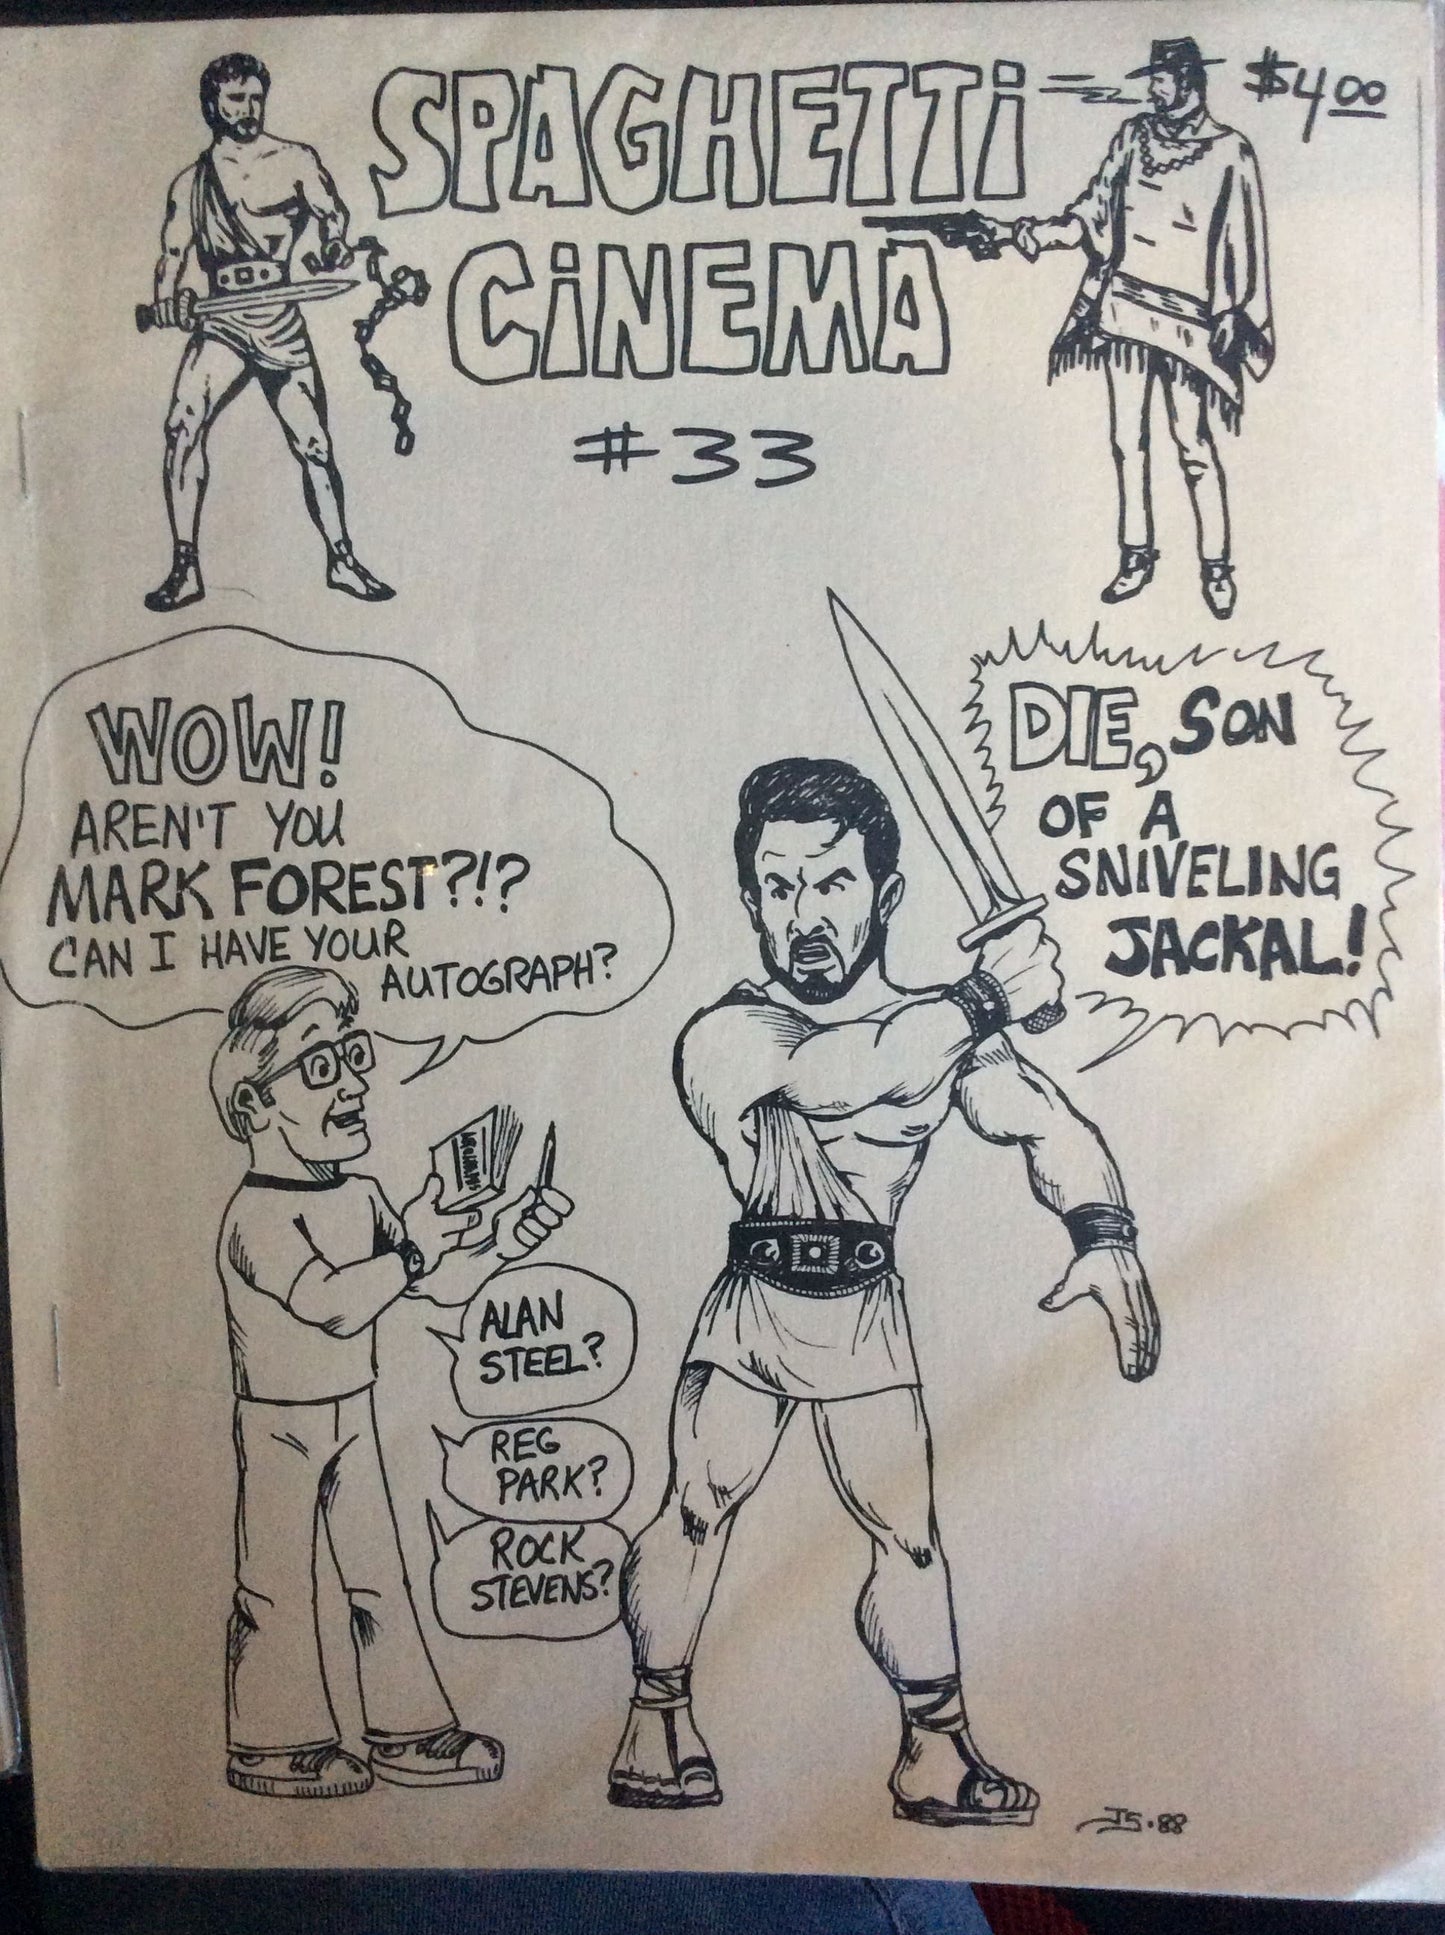 SPAGHETTI
CINEMA
$4.00
#33
WOW!
AREN'T YOU
MARK FOREST?!?
CAN I HAVE YOUR
AUTOGRAPH?
DIE, SON
OF A
SNIVELING
JACKAL!
ALAN
STEEL?
REG
PARK?
ROCK
STEVENS?
JS·88